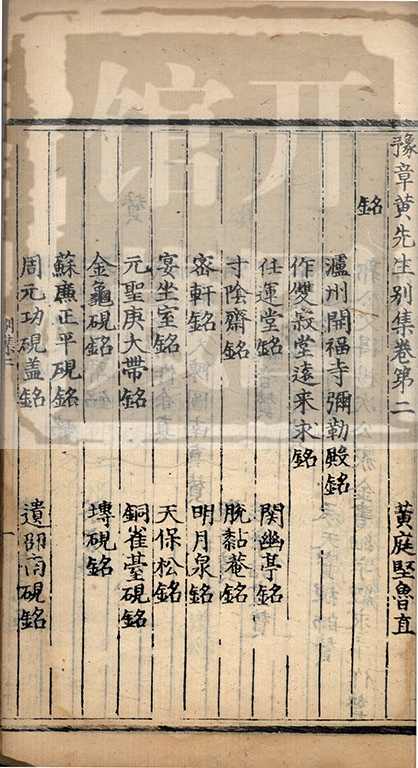 豫章黃先生别集卷第二
黃庭堅魯直
銘
瀘州開福寺彌勒殿銘
作雙寂堂遠来求銘
任運堂銘 関幽亭銘
寸陰齋銘 脫黏菴銘
密軒銘 明月泉銘
宴坐室銘 天保松銘
元聖庚大帶銘 銅雀䑓硯銘
金龜硯銘 塼硯銘
蘇廉正平硯銘
周元功硯盖銘 遺邵
硯銘
别集二
一